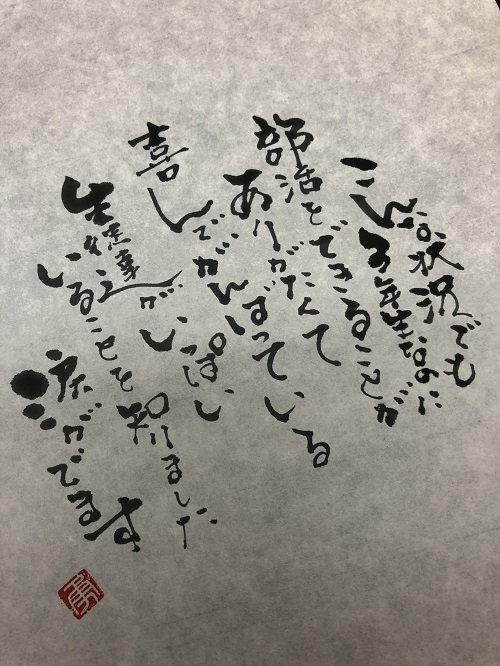 こんな状況でも
3年生なのに
部活をできることが
ありがたくて
喜んでがんばっている
生徒達がいっぱい
いることを知りました
涙がでます